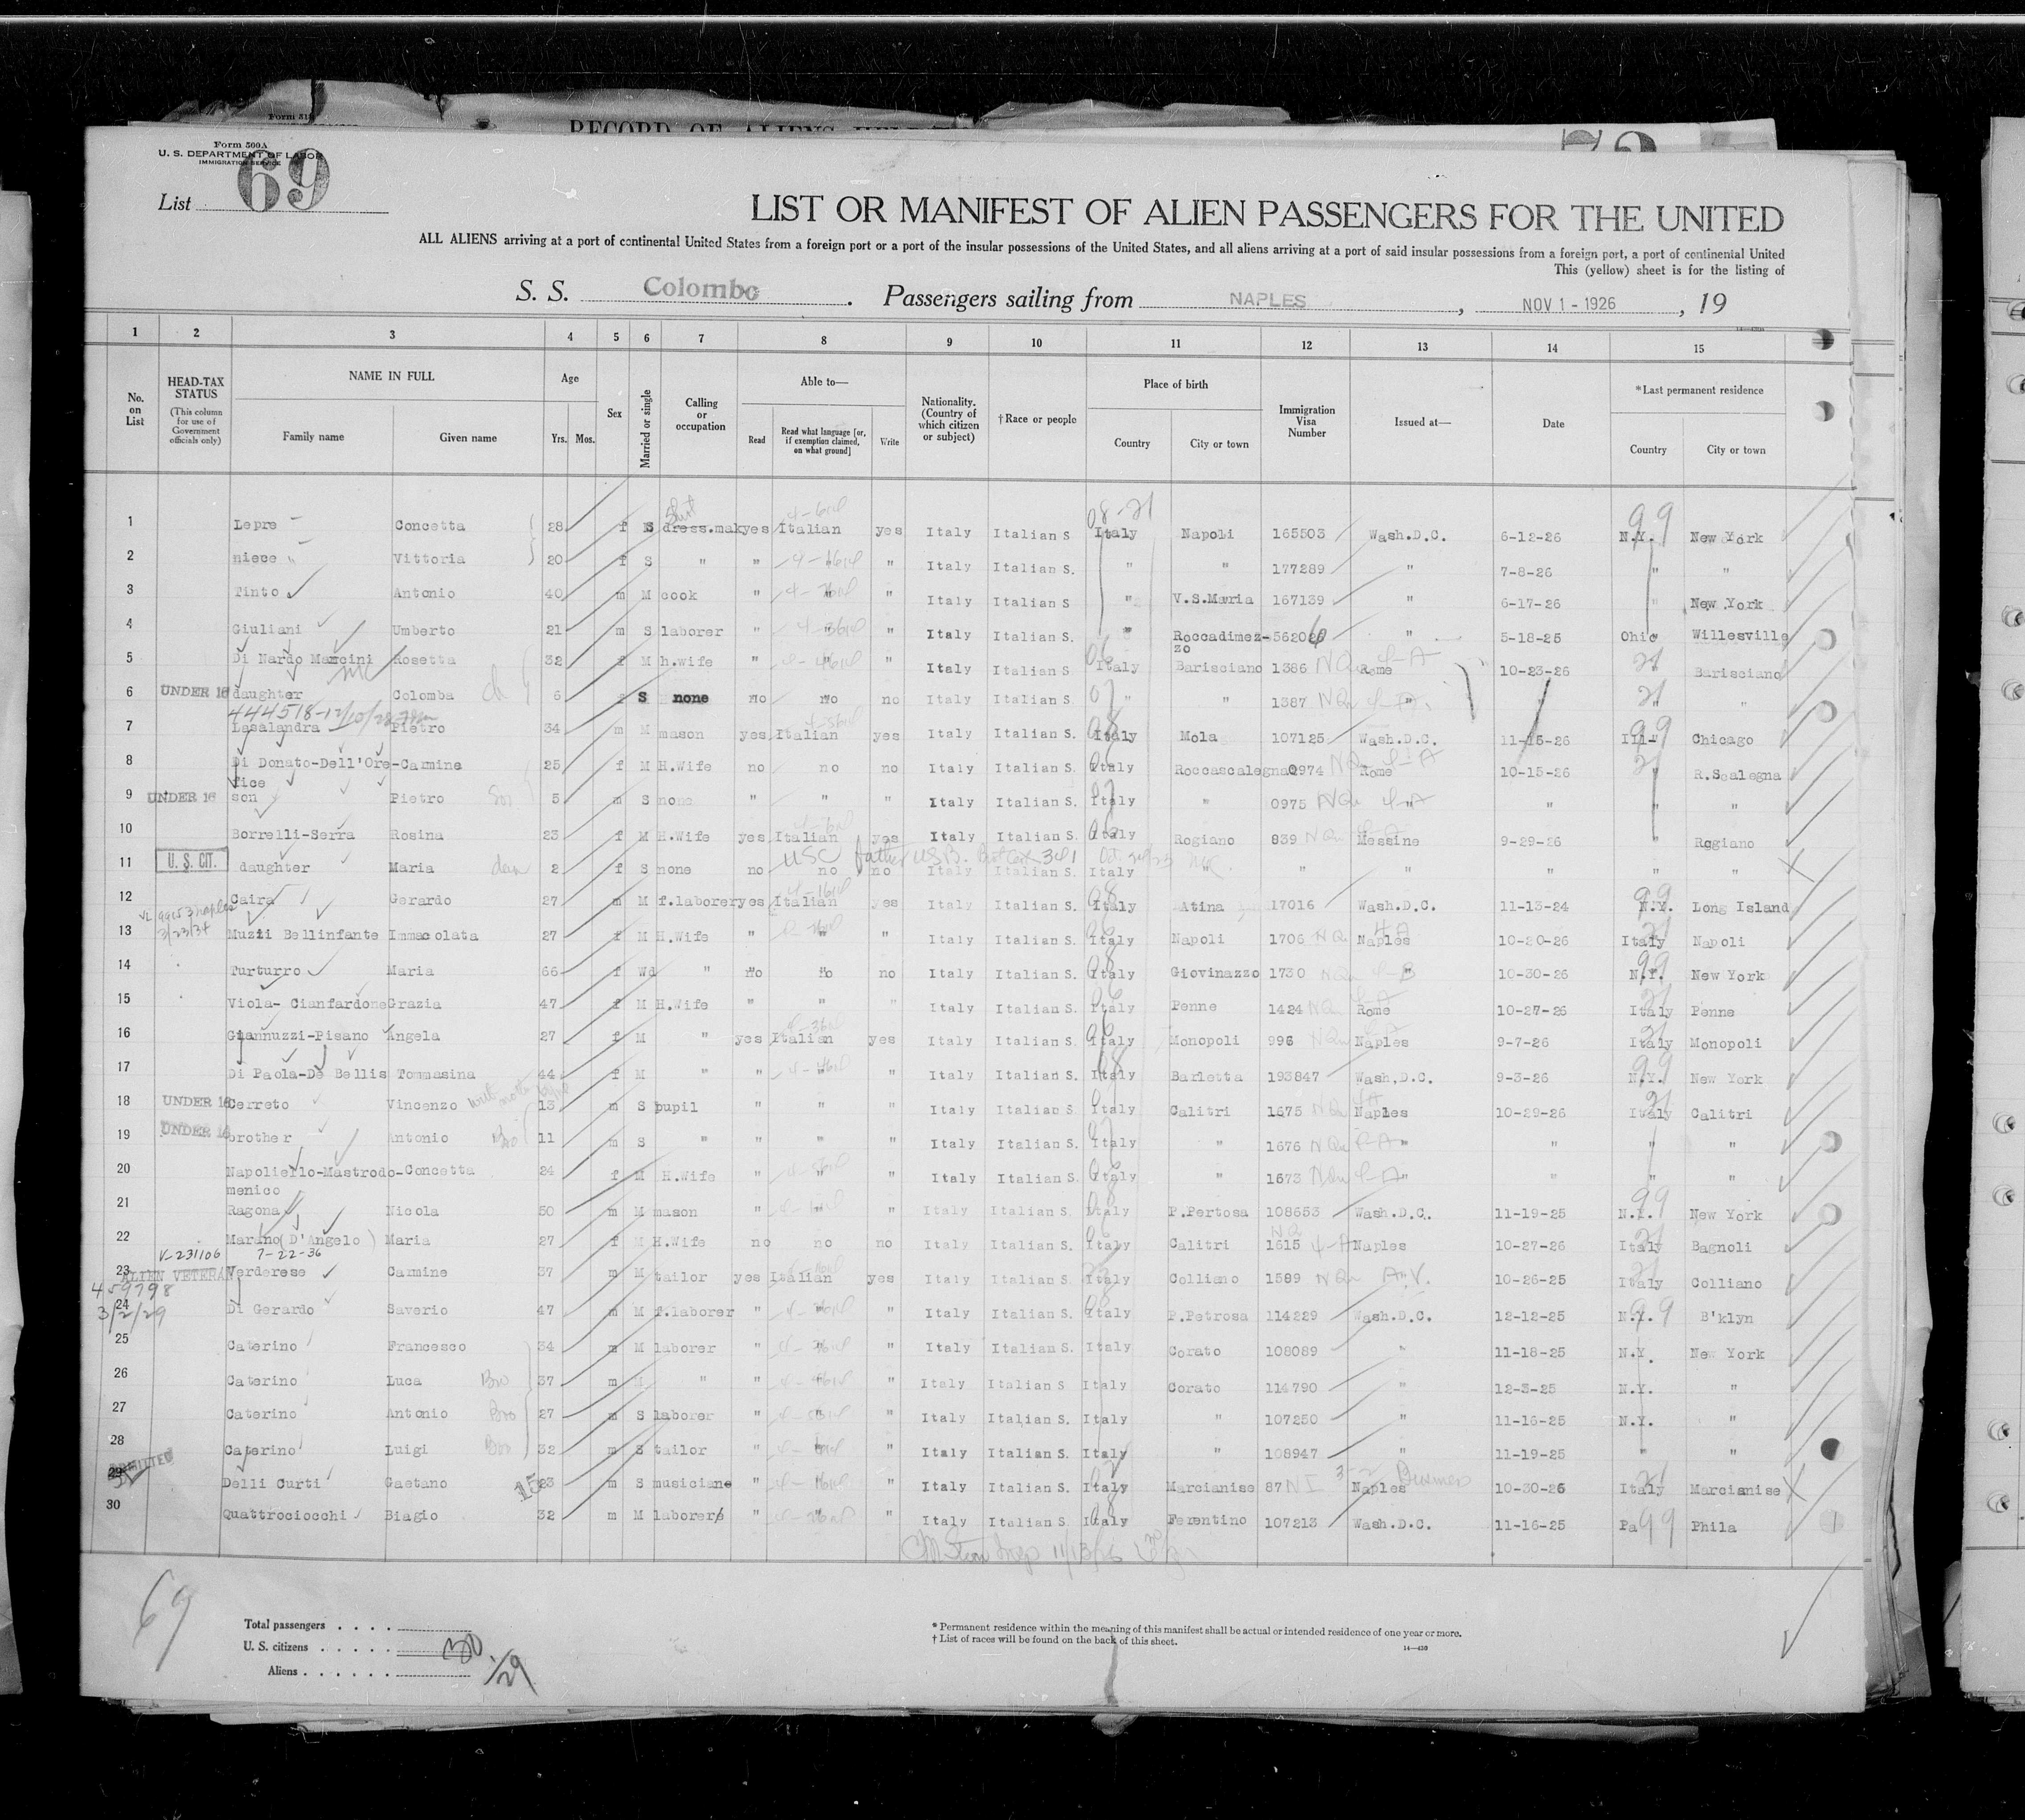 Form 500A
U. S. DEPARTMENT OF LABOR
IMMIGRATION SERVICE
List 69
LIST OR MANIFEST OF ALIEN PASSENGERS FOR THE UNITED
ALL ALIENS arriving at a port of continental United States from a foreign port or a port of the insular possessions of the United States, and all aliens arriving at a port of said insular possessions from a foreign port, a port of continental United
This (yellow) sheet is for the listing of
S. S. Colombo. Passengers sailing from NAPLES, NOV 1 - 1926, 19
1 2 3 4 5 6 7 8 9 10 11 12 13 14 15
No. on List HEAD-TAX STATUS (This column for use of Government officials only) NAME IN FULL Family name Given name Age Yrs. Mos. Sex Married or single Calling or occupation Able to— Read Read what language [or, if exemption claimed, on what ground] Write Nationality. (Country of which citizen or subject) †Race or people Place of birth Country City or town Immigration Visa Number Issued at— Date *Last permanent residence Country City or town
1 Lepre Concetta 28 f S dress.mak yes Italian yes Italy Italian S Italy Napoli 165503 Wash.D.C. 6-12-26 N.Y. New York
2 niece Vittoria 20 f S " " " " Italy Italian S. " " 177289 " 7-8-26 " "
3 Tinto Antonio 40 m M cook " " " Italy Italian S " V.S.Maria 167139 " 6-17-26 " New York
4 Giuliani Umberto 21 m S laborer " " " Italy Italian S. " Roccadimez-zo 562026 " 5-18-25 Ohio Willesville
5 Di Nardo Mancini Rosetta 32 f M h.wife " " " Italy Italian S. Italy Barisciano 1386 NQ Rome 10-23-26 " Barisciano
6 UNDER 16 daughter Colomba 6 f S none no no no Italy Italian S. " " 1387 NQ " " "
444518-12/10/28
7 Lasalandra Pietro 34 m M mason yes Italian yes Italy Italian S. Italy Mola 107125 Wash.D.C. 11-15-26 Ill. Chicago
8 Di Donato-Dell'Ore-fice Carmina 25 f M H.Wife no no no Italy Italian S. Italy Roccascalegna 0974 Rome 10-15-26 R.Scalegna
9 UNDER 16 son Pietro 5 m S none " " " Italy Italian S. Italy " 0975 " " " "
10 Borrelli-Serra Rosina 23 f M H.Wife yes Italian yes Italy Italian S. Italy Rogiano 839 Messine 9-29-26 " Rogiano
11 U. S. CIT. daughter Maria 2 f S none no no no Italy Italian S. Italy " " " " " "
USC father USB.
12 Caira Gerardo 27 m M f.laborer yes Italian yes Italy Italian S. Italy Atina 17016 Wash.D.C. 11-13-24 N.Y. Long Island
3/23/34
13 Muzii Bellinfante Immacolata 27 f M H.Wife " " " Italy Italian S. Italy Napoli 1706 NQ Naples 10-20-26 Italy Napoli
14 Turturro Maria 66 f Wd " no no no Italy Italian S. Italy Giovinazzo 1730 " 10-30-26 N.Y. New York
15 Viola- Cianfardone Grazia 47 f M H.Wife " " " Italy Italian S. Italy Penne 1424 Rome 10-27-26 Italy Penne
16 Giannuzzi-Pisano Angela 27 f M " yes Italian yes Italy Italian S. Italy Monopoli 996 Naples 9-7-26 Italy Monopoli
17 Di Paola-De Bellis Tommasina 44 f M " " " " Italy Italian S. Italy Barletta 193847 Wash,D.C. 9-3-26 N.Y. New York
18 UNDER 16 Cerreto Vincenzo 13 m S pupil " " " Italy Italian S Italy Calitri 1675 Naples 10-29-26 Italy Calitri
19 UNDER 16 brother Antonio Bro 11 m S " " " " Italy Italian S. Italy " 1676 " " " "
20 Napoliello-Mastrodo-menico Concetta 24 f M H.Wife " " " Italy Italian S. Italy " 1673 " " " "
21 Ragona Nicola 50 m M mason " " " Italy Italian S. Italy P.Pertosa 108653 Wash.D.C. 11-19-25 N.Y. New York
22 Marano( D'Angelo ) Maria 27 f M H.Wife no no no Italy Italian S. Italy Calitri 1615 Naples 10-27-26 Italy Bagnoli
V-231106 7-22-36
23 ALIEN VETERAN Verderese Carmine 37 m M tailor yes Italian yes Italy Italian S. Italy Colliano 1589 A.V. 10-26-25 Italy Colliano
459798
3/2/29
24 Di Gerardo Saverio 47 m M f.laborer " " " Italy Italian S. Italy P.Petrosa 114229 Wash.D.C. 12-12-25 N.Y. B'klyn
25 Caterino Francesco 34 m M laborer " " " Italy Italian S. Italy Corato 108089 " 11-18-25 N.Y. New York
26 Caterino Luca Bro 37 m M " " " " Italy Italian S Italy Corato 114790 " 12-3-25 N.Y. "
27 Caterino Antonio Bro 27 m S laborer " " " Italy Italian S. Italy " 107250 " 11-16-25 N.Y. "
28 Caterino Luigi Bro 32 m S tailor " " " Italy Italian S. Italy " 108947 " 11-19-25 " "
ADMITTED
29 Delli Curti Gaetano 23 m S musician " " " Italy Italian S. Italy Marcianise 87 NI 3-2 Business Naples 10-30-26 Italy Marcianise
30 Quattrociocchi Biagio 32 m M laborer " " " Italy Italian S Italy Ferentino 107213 Wash.D.C. 11-16-25 Pa Phila
11/13/26
69
Total passengers . . . .
U. S. citizens . . . . . 30
Aliens . . . . . . 1/29
* Permanent residence within the meaning of this manifest shall be actual or intended residence of one year or more.
† List of races will be found on the back of this sheet.
14—430